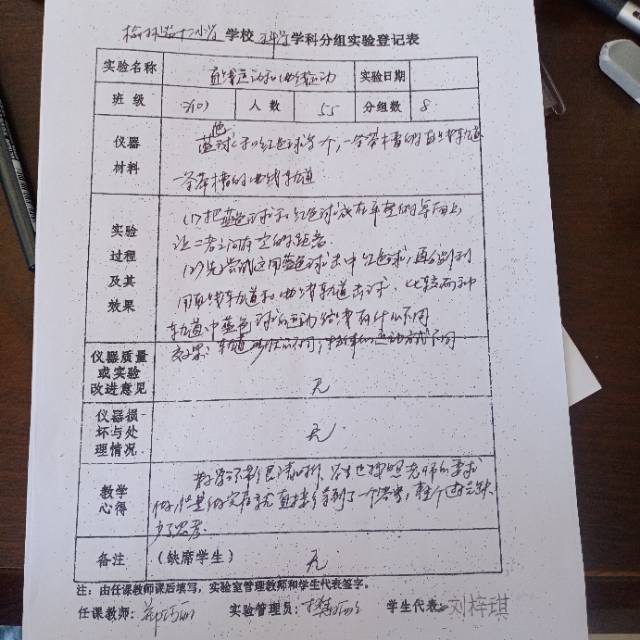 榆林第十二小学 学校 科学 学科分组实验登记表
实验名称 直线运动和曲线运动 实验日期
班 级 人 数 55 分组数 8
仪器 蓝色球和红色球各一个,一条带槽的直线轨道
材料 一条带槽的曲线轨道
实验 (1)把蓝色球和红色球放在平整的桌面上
过程 让二者之间有一定的距离
及其 (2)先尝试用蓝色球击中红色球,再分别利
效果 用直线轨道和曲线轨道击球,比较两种
轨道中蓝色球的运动路线有什么不同
效果:轨道形状不同,球的运动方式不同
仪器质量
或实验
改进意见 无
仪器损
坏与处
理情况 无
教学 学生也按照老师的要求
心得 做,但是做完后就直接得到了一个答案,整个过程缺
少了思考
备注 (缺席学生) 无
注:由任课教师课后填写,实验室管理教师和学生代表签字。
任课教师: 实验管理员: 学生代表: 刘梓琪